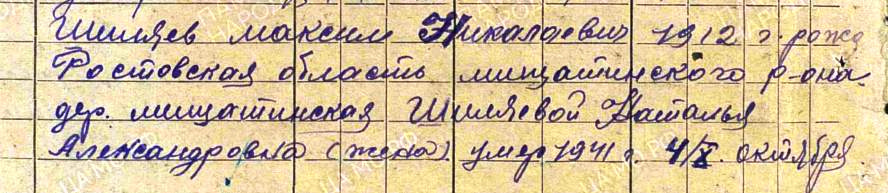 Шиляев Максим Николаевич 1912 г. рожд
Ростовская область мищатинского р-она
дер. мищатинская Шиляевой Наталья
Александровна (жена) умер 1941 г. 4/X октября